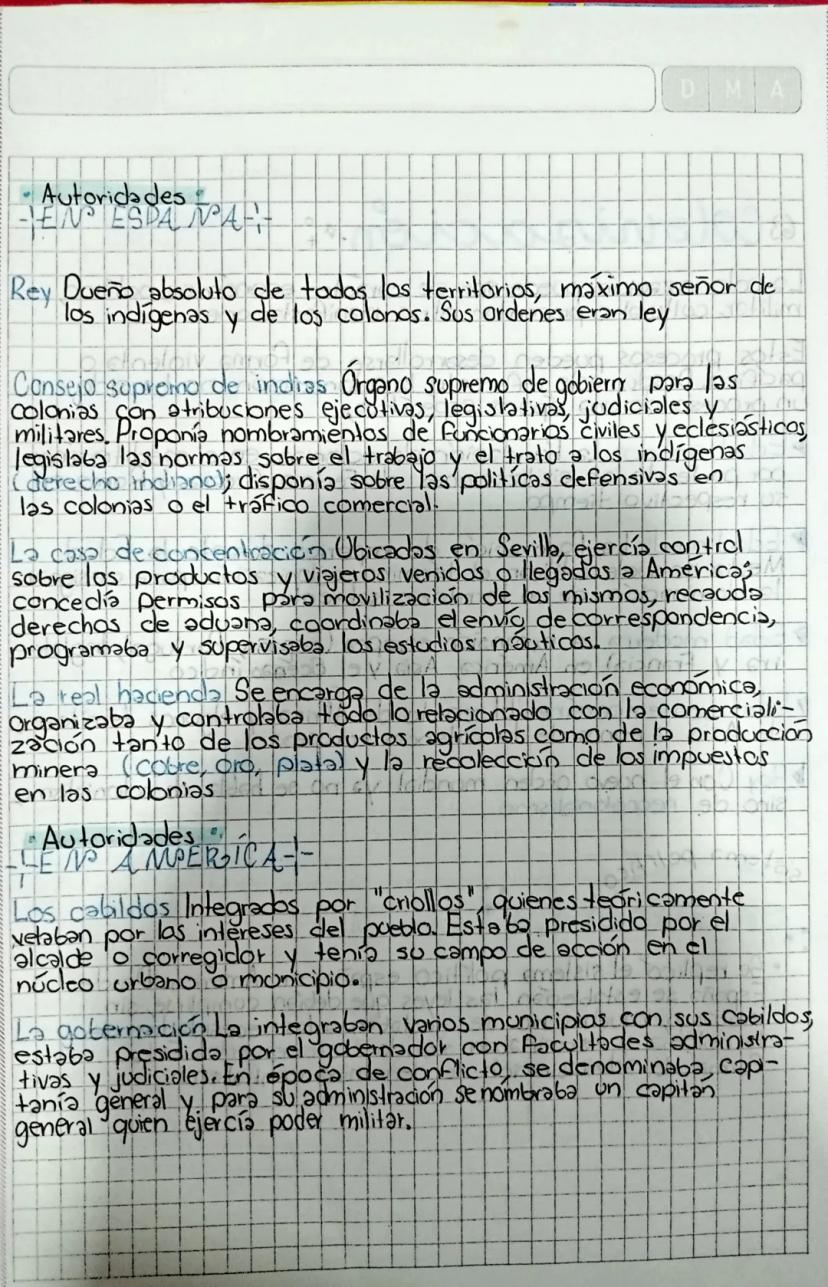 D M A
• Autoridades •
EN ESPAÑA
Rey Dueño absoluto de todos los territorios, máximo señor de
los indígenas y de los colonos. Sus ordenes eran ley
Consejo supremo de indias Órgano supremo de gobiern para las
colonias con atribuciones ejecutivas, legislativas, judiciales y
militares. Proponía nombramientos de funcionarios civiles y eclesiásticos,
legislaba las normas sobre el trabajo y el trato a los indígenas
(derecho indiano); disponía sobre las políticas defensivas en
las colonias o el tráfico comercial.
La casa de concentración Ubicados en Sevilla, ejercía control
sobre los productos y viajeros venidos o llegadas a América;
concedía permisos para movilización de los mismos, recauda
derechos de aduana, coordinaba el envío de correspondencia,
programaba y supervisaba los estudios náuticos.
La real hacienda Se encarga de la administración económica,
organizaba y controlaba todo lo relacionado con la comerciali-
zación tanto de los productos agrícolas como de la producción
minera (cobre, oro, plata) y la recolección de los impuestos
en las colonias
• Autoridades •
EN AMERÍCA
Los cabildos Integrados por "criollos", quienes teóricamente
velaban por los intereses del pueblo. Estaba presidido por el
alcalde o corregidor y tenía su campo de acción en el
núcleo urbano o municipio.
La gobernación La integraban varios municipios con sus cabildos,
estaba presidida por el gobernador con facultades administra-
tivas y judiciales. En época de conflicto, se denominaba, capi-
tanía general y para su administración se nombraba un capitán
general quien ejercía poder militar.